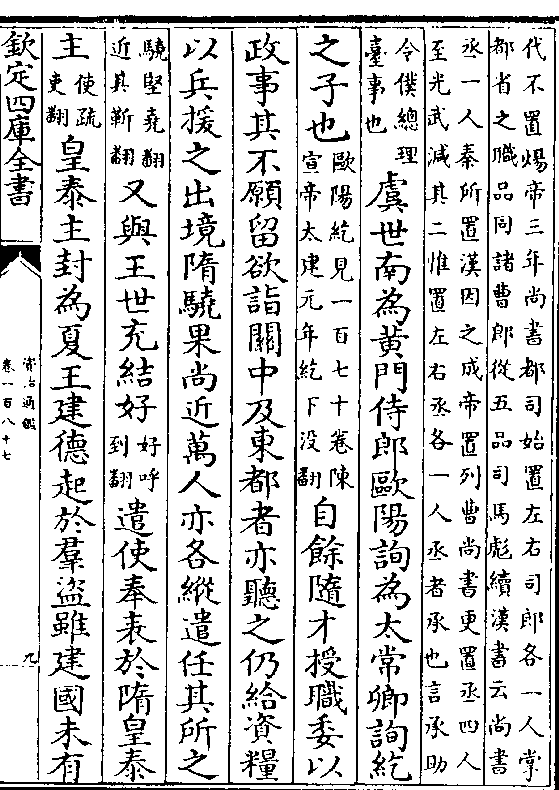 代不置煬帝三年尚書都司始置左右司郎各一人掌
都省之職品同諸曹郎從五品司馬彪續漢書云尚書
丞一人秦所置漢因之成帝置列曹尚書更置丞四人
至光武減其二惟置左右丞各一人丞者承也言承助
令僕總理
臺事也
虞世南為黃門侍郎歐陽詢為太常卿詢紇
之子也
歐陽紇見一百七十卷陳
宣帝太建元年紇下沒翻
自餘隨才授職委以
政事其不願留欲詣關中及東都者亦聽之仍給資糧
以兵援之出境隋驍果尚近萬人亦各縱遣任其所之
驍堅堯翻
近其靳翻
又與王世充結好
好呼
到翻
遣使奉表於隋皇泰
主
使疏
吏翻
皇泰主封為夏王建德起於羣盜雖建國未有
欽定四庫全書
資治通鑑
卷一百八十七
九